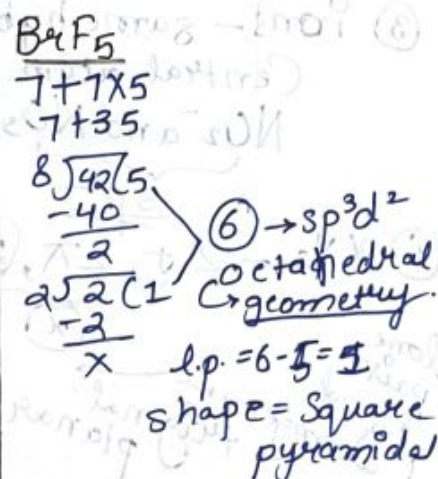 BrF5
7+7x5
7+35
8)42(5
-40
2
2)2(1
-2
x
6 → sp³d²
Octahedral
↳ geometry.
l.p. = 6-5=1
shape = Square
pyramidal